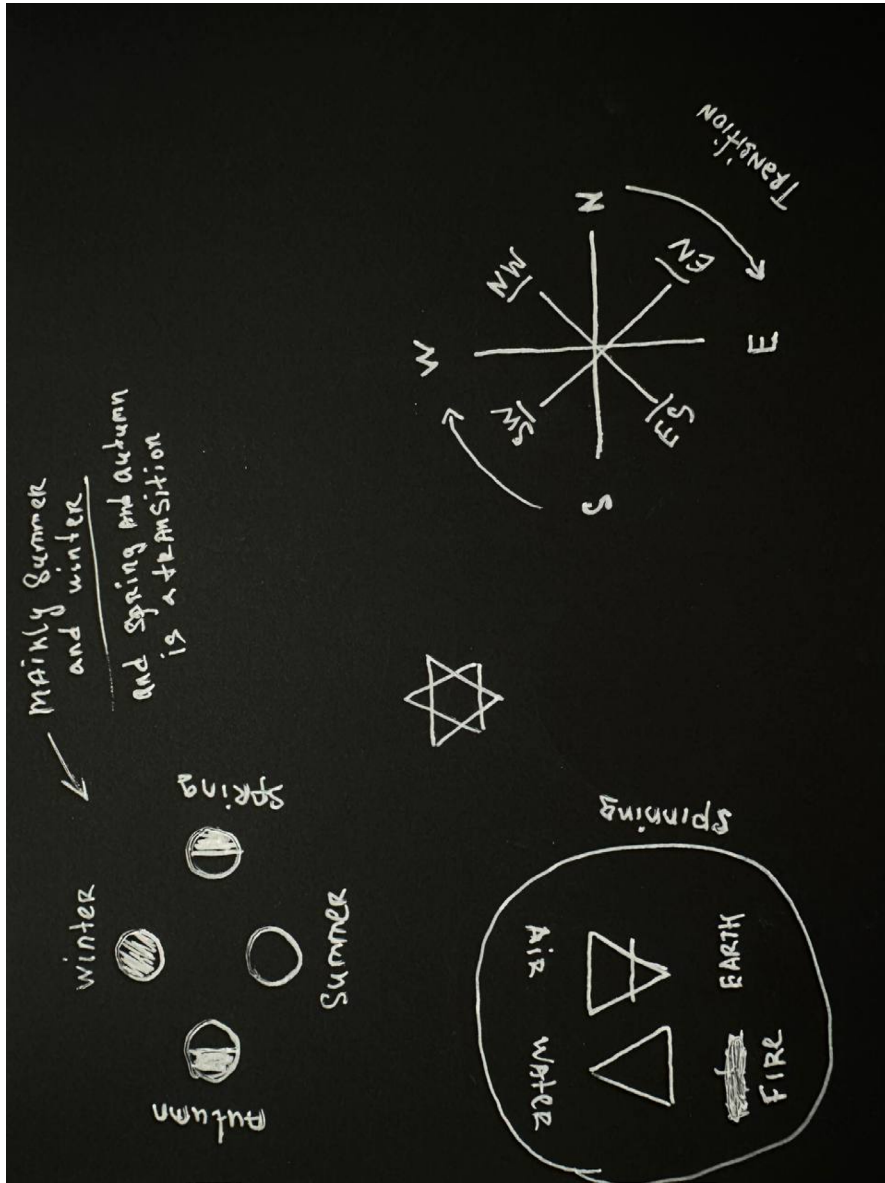 MAINLY SUMMER
and winter
and SPRING AND autumn
is a tRANSition
winter
SPRING
Summer
Autumn
TRANSITION
N
NE
E
SE
S
SW
W
NW
Spinning
AiR
EARTH
WATER
FIRE